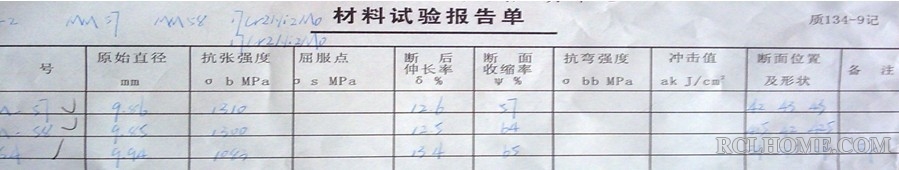 -2 MM57 MM58
材料试验报告单
质134-9记
号 原始直径 mm 抗张强度 σ b MPa 屈服点 σ s MPa 断后伸长率 δ % 断面收缩率 ψ % 抗弯强度 σ bb MPa 冲击值 ak J/cm² 断面位置及形状 备注
A-57 9.46 1310 12.6 57 42 43 43
A-58 9.45 1300 12.5 64
9.94 13.4 65
RCLHOME.COM